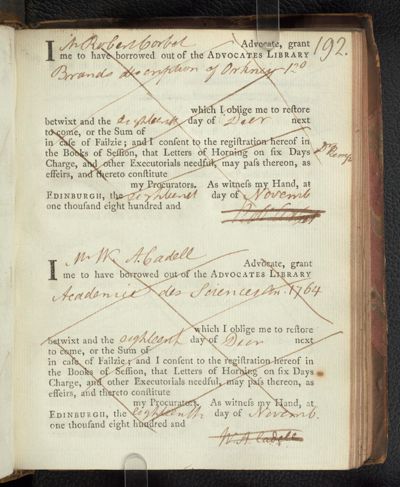 192.
I Mr Robert Corbet Advocate, grant
me to have borrowed out of the ADVOCATES LIBRARY
Brands description of Orkney 1vo
which I oblige me to reſtore
betwixt and the eighteenth day of Decr next
to come, or the Sum of
in caſe of Failzie; and I conſent to the regiſtration hereof in
the Books of Seſſion, that Letters of Horning on ſix Days
Charge, and other Executorials needful, may paſs thereon, as
effeirs, and thereto conſtitute
my Procurators. As witneſs my Hand, at
EDINBURGH, the eighteenth day of Novemb
one thouſand eight hundred and
I Mr W. A. Cadell Advocate, grant
me to have borrowed out of the ADVOCATES LIBRARY
Academie des Sciences An. 1764
which I oblige me to reſtore
betwixt and the eighteent day of Decr next
to come, or the Sum of
in caſe of Failzie; and I conſent to the regiſtration hereof in
the Books of Seſſion, that Letters of Horning on ſix Days
Charge, and other Executorials needful, may paſs thereon, as
effeirs, and thereto conſtitute
my Procurators. As witneſs my Hand, at
EDINBURGH, the eighteenth day of Novemb.
one thouſand eight hundred and
W. A. Cadell